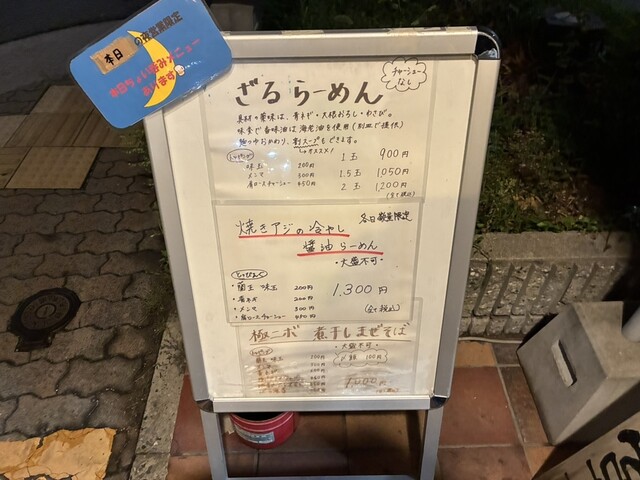 本日の夜営業限定
ざるらーめん
チャーシューなし
具材の薬味は、青ネギ・大根おろし・わさび。
味変で香味油は海老油を使用(別皿で提供)
麺の中おかわり、割スープもできます。
↳オススメ!
味玉 200円
メンマ 300円
肩ロースチャーシュー 450円
1玉 900円
1.5玉 1,050円
2玉 1,200円
(全て税込)
焼きアジの冷やし
各日数量限定
醤油らーめん
・大盛不可・
・蘭王 味玉 200円
・青ネギ 200円
・メンマ 300円
・肩ロースチャーシュー 450円
1,300円
(全て税込)
極ニボ 煮干しまぜそば
・大盛不可・
100円